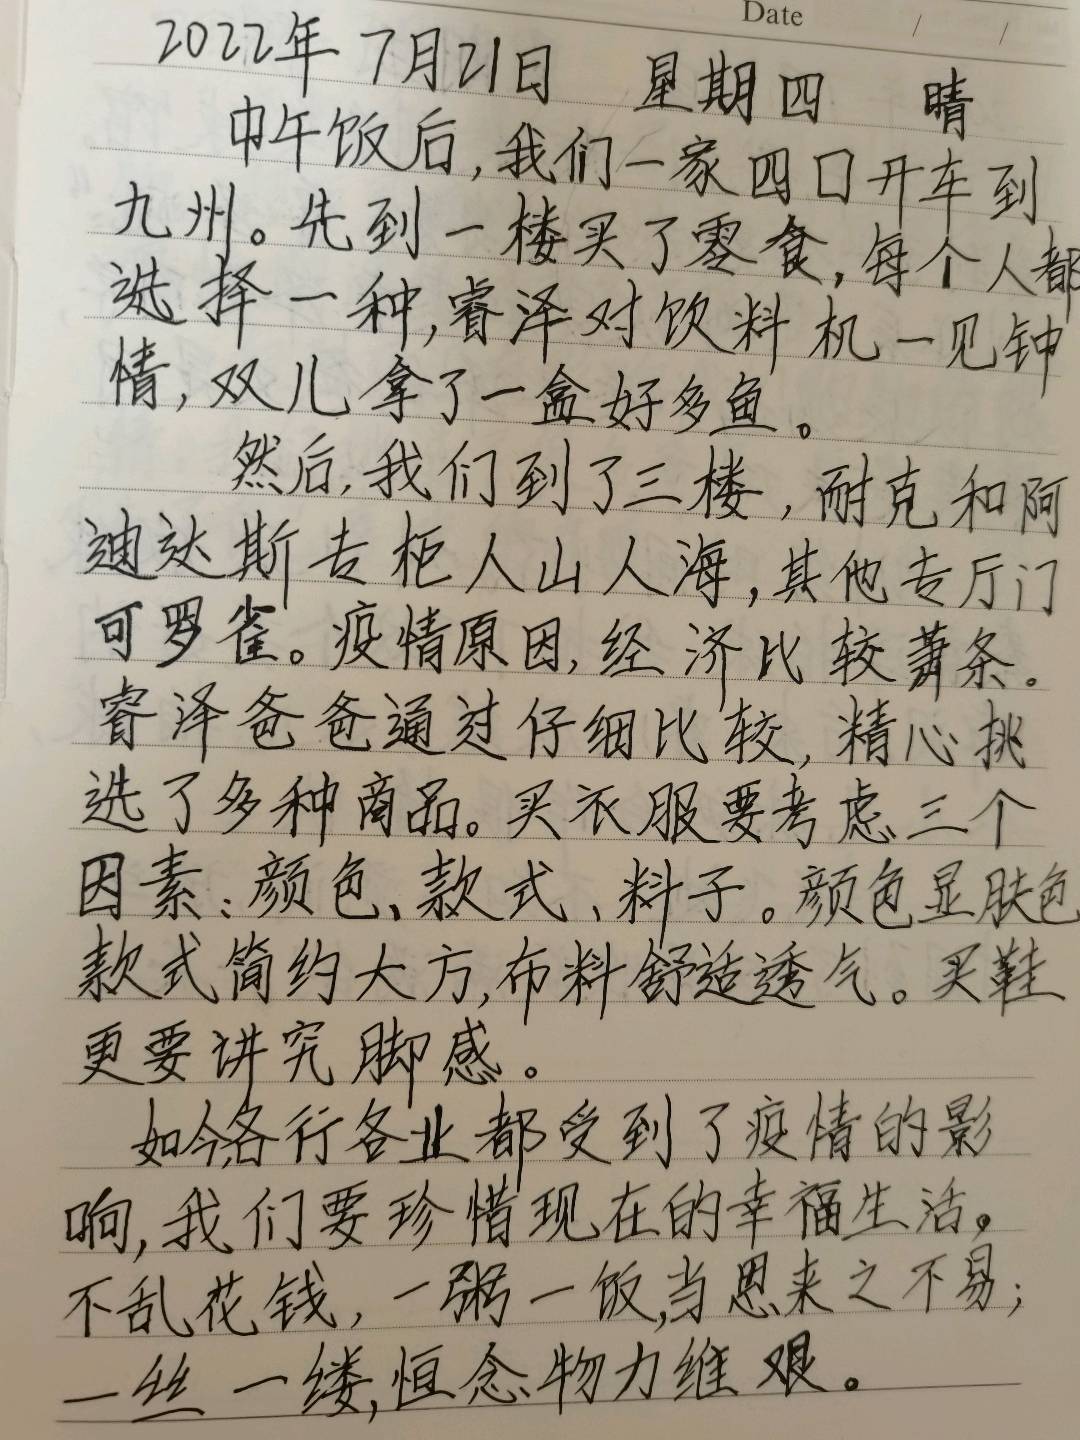 Date / /
2022年7月21日 星期四 晴
中午饭后,我们一家四口开车到
九州。先到一楼买了零食,每个人都
选择一种,睿泽对饮料机一见钟
情,双儿拿了一盒好多鱼。
然后,我们到了三楼,耐克和阿
迪达斯专柜人山人海,其他专厅门
可罗雀。疫情原因,经济比较萧条。
睿泽爸爸通过仔细比较,精心挑
选了多种商品。买衣服要考虑三个
因素:颜色、款式、料子。颜色显肤色
款式简约大方,布料舒适透气。买鞋
更要讲究脚感。
如今,各行各业都受到了疫情的影
响,我们要珍惜现在的幸福生活。
不乱花钱,一粥一饭,当思来之不易;
一丝一缕,恒念物力维艰。